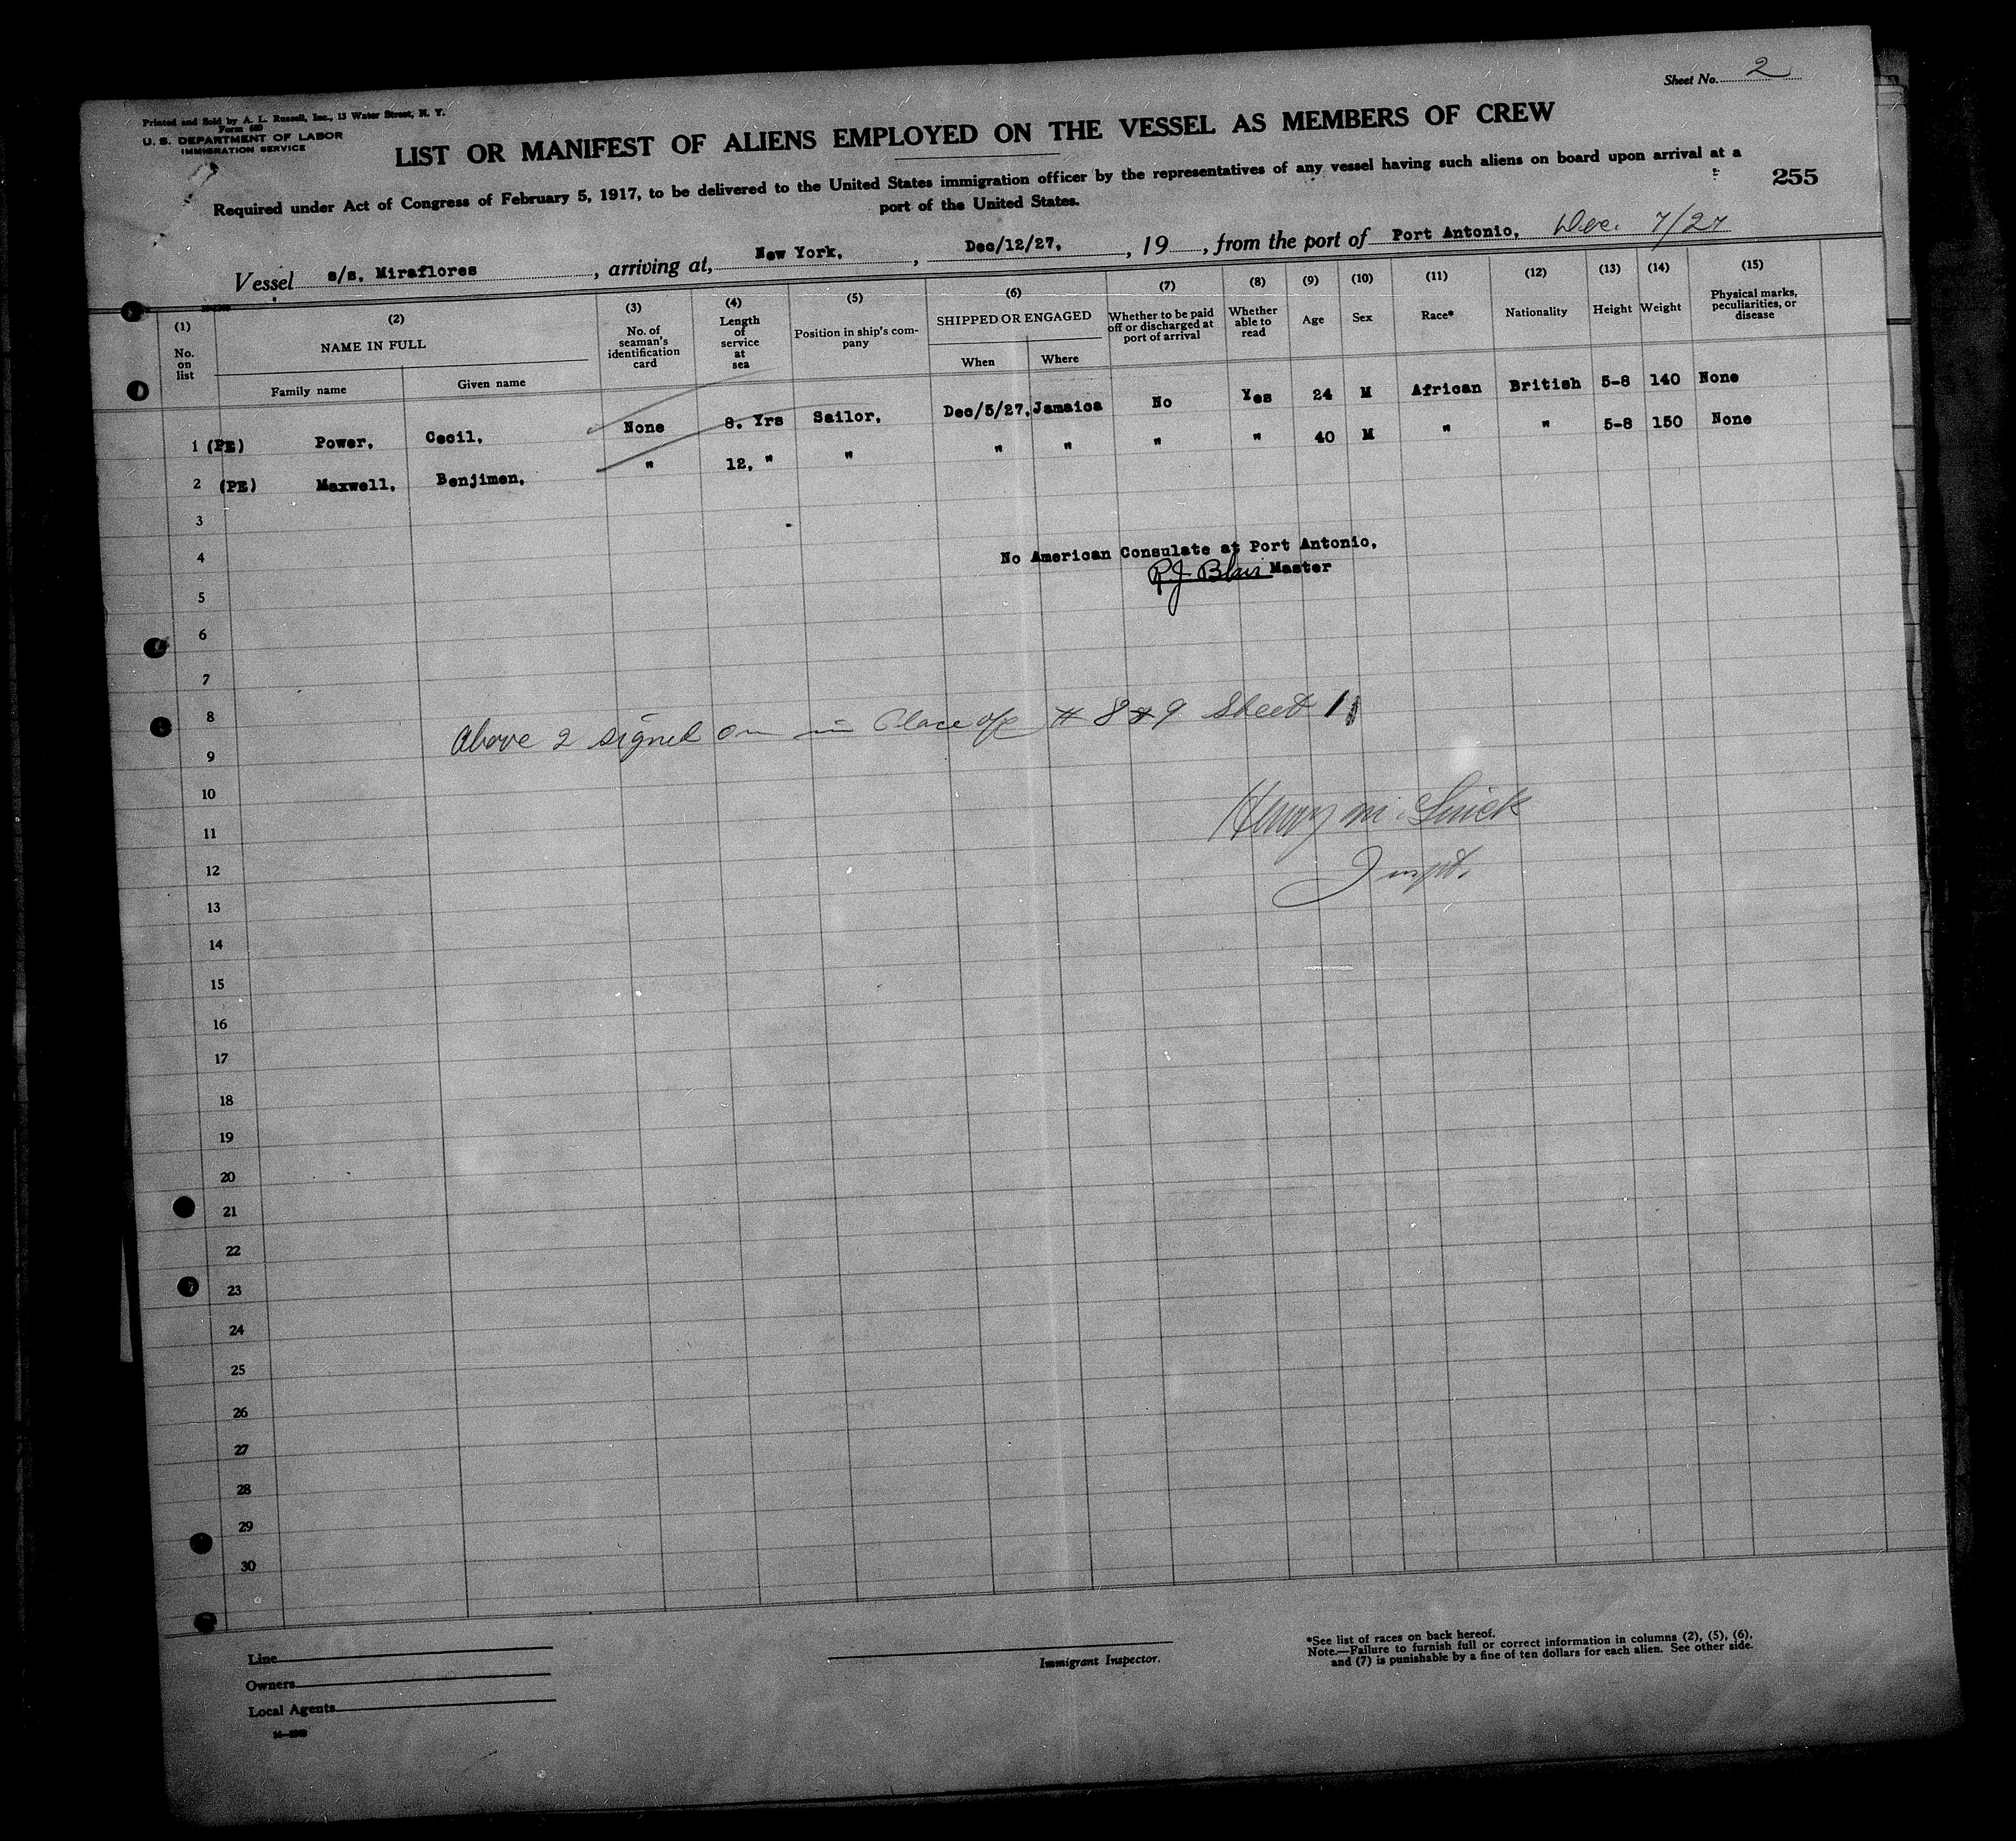 Sheet No. 2
Printed and Sold by A. L. Russell, Inc., 13 Water Street, N. Y.
Form 680
U. S. DEPARTMENT OF LABOR
IMMIGRATION SERVICE
LIST OR MANIFEST OF ALIENS EMPLOYED ON THE VESSEL AS MEMBERS OF CREW
255
Required under Act of Congress of February 5, 1917, to be delivered to the United States immigration officer by the representatives of any vessel having such aliens on board upon arrival at a
port of the United States.
Vessel s/s. Miraflores, arriving at, New York, , Dec/12/27. , 19 , from the port of Port Antonio, Dec. 7/27
(1) (2) (3) (4) (5) (6) (7) (8) (9) (10) (11) (12) (13) (14) (15)
No. on list NAME IN FULL No. of seaman's identification card Length of service at sea Position in ship's company SHIPPED OR ENGAGED Whether to be paid off or discharged at port of arrival Whether able to read Age Sex Race* Nationality Height Weight Physical marks, peculiarities, or disease
Family name Given name When Where
1 (PE) Power, Cecil, None 8. Yrs Sailor, Dec/5/27, Jamaica No Yes 24 M African British 5-8 140 None
2 (PE) Maxwell, Benjimen, " 12, " " " " " " 40 M " " 5-8 150 None
3
4
No American Consulate at Port Antonio,
R.J. Blair Master
5
6
7
8
Above 2 signed on in Place of # 8 & 9 Sheet 1
9
10
11
12
Inspt.
13
14
15
16
17
18
19
20
21
22
23
24
25
26
27
28
29
30
Line
Owners
Local Agents
Immigrant Inspector.
*See list of races on back hereof.
Note.—Failure to furnish full or correct information in columns (2), (5), (6),
and (7) is punishable by a fine of ten dollars for each alien. See other side.